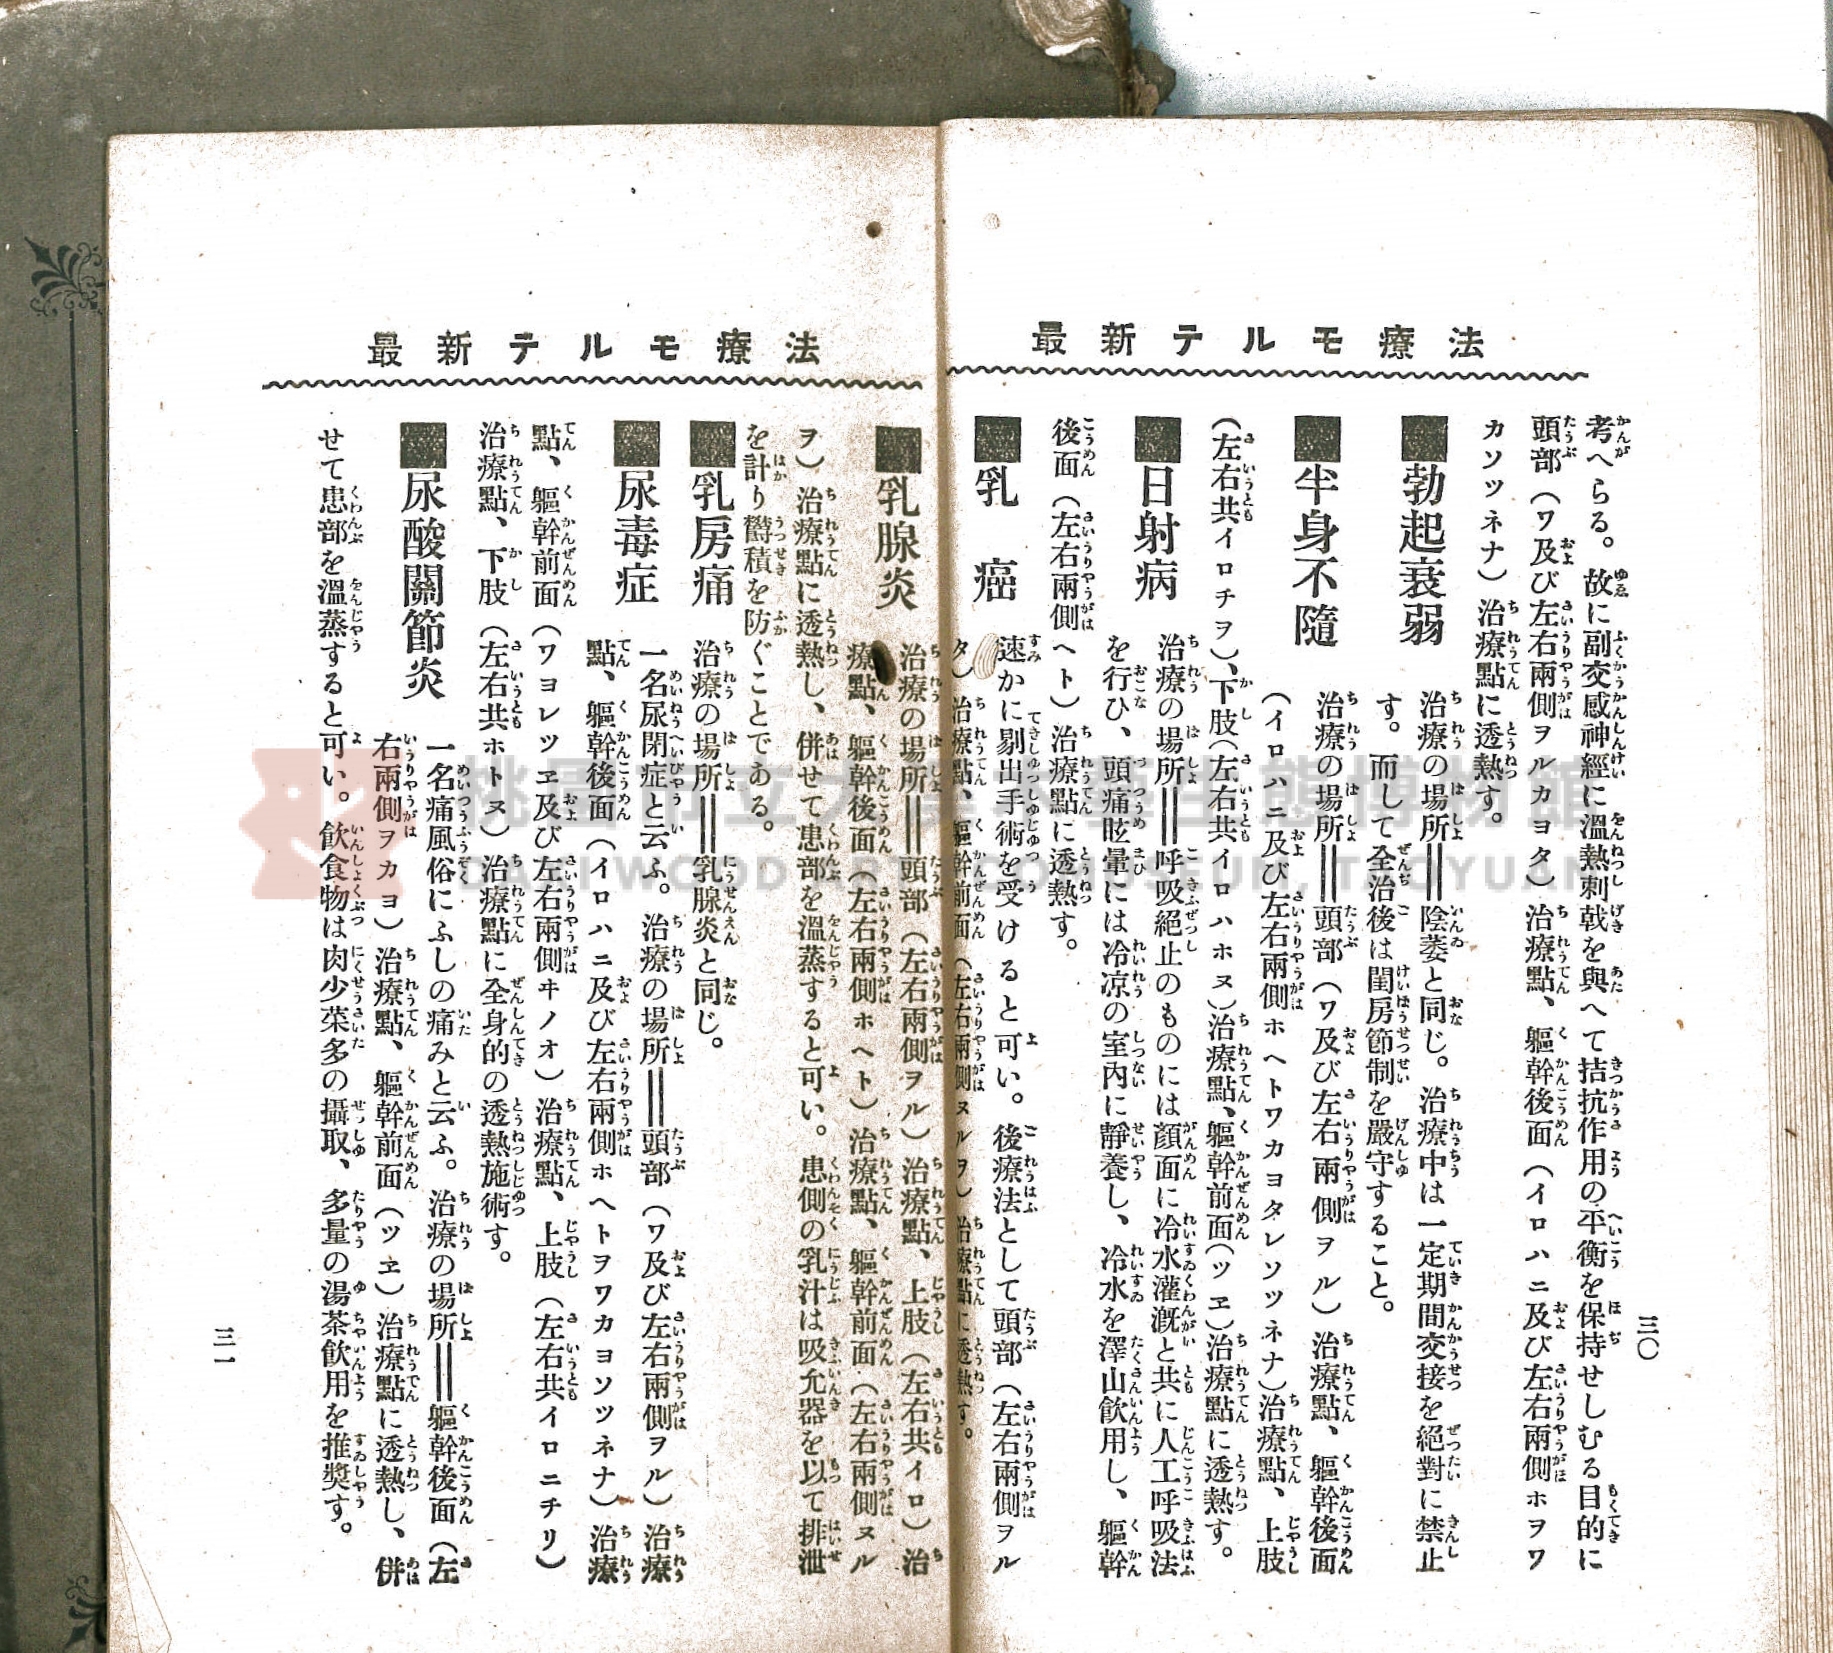 最新テルモ療法
三〇
考へらる。故に副交感神經に溫熱刺戟を與へて拮抗作用の平衡を保持せしむる目的に
頭部(ワ及び左右兩側ヲルカヨタ)治療點、軀幹後面(イロハニ及び左右兩側ホヲワ
カソツネナ)治療點に透熱す。
■勃起衰弱 治療の場所‖陰萎と同じ。治療中は一定期間交接を絕對に禁止
す。而して全治後は閨房節制を嚴守すること。
■半身不隨 治療の場所‖頭部(ワ及び左右兩側ヲル)治療點、軀幹後面
(イロハニ及び左右兩側ホヘトワカヨタレソツネナ)治療點、上肢
(左右共イロチヲ)、下肢(左右共イロハホヌ)治療點、軀幹前面(ツヱ)治療點に透熱す。
■日射病 治療の場所‖呼吸絕止のものには顏面に冷水灌漑と共に人工呼吸法
を行ひ、頭痛眩暈には冷凉の室內に靜養し、冷水を澤山飮用し、軀幹
後面(左右兩側ヘト)治療點に透熱す。
■乳癌 速かに剔出手術を受けると可い。後療法として頭部(左右兩側ヲル
タ)治療點、軀幹前面(左右兩側ヌルヲ)治療點に透熱す。
最新テルモ療法
■乳腺炎 治療の場所‖頭部(左右兩側ヲル)治療點、上肢(左右共イロ)治
療點、軀幹後面(左右兩側ホヘト)治療點、軀幹前面(左右兩側ヌル
ヲ)治療點に透熱し、併せて患部を溫蒸すると可い。患側の乳汁は吸允器を以て排泄
を計り欝積を防ぐことである。
■乳房痛 治療の場所‖乳腺炎と同じ。
■尿毒症 一名尿閉症と云ふ。治療の場所‖頭部(ワ及び左右兩側ヲル)治療
點、軀幹後面(イロハニ及び左右兩側ホヘトヲワカヨソツネナ)治療
點、軀幹前面(ワヨレツヱ及び左右兩側ヰノオ)治療點、上肢(左右共イロニチリ)
治療點、下肢(左右共ホトヌ)治療點に全身的の透熱施術す。
■尿酸關節炎 一名痛風俗にふしの痛みと云ふ。治療の場所‖軀幹後面(左
右兩側ヲカヨ)治療點、軀幹前面(ツヱ)治療點に透熱し、併
せて患部を溫蒸すると可い。飮食物は肉少菜多の攝取、多量の湯茶飮用を推奬す。
三一
桃園市立大溪木藝生態博物館
DAXI WOOD ART ECOMUSEUM, TAOYUAN